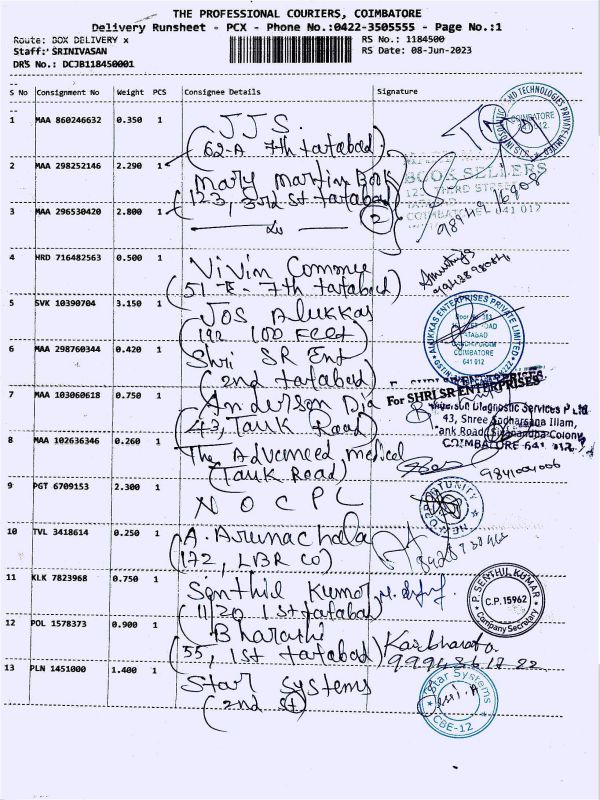 THE PROFESSIONAL COURIERS, COIMBATORE
Delivery Runsheet - PCX - Phone No.:0422-3505555 - Page No.:1
Route: BOX DELIVERY x
RS No.: 1184500
Staff: SRINIVASAN
RS Date: 08-Jun-2023
DRS No.: DCJB118450001
S No Consignment No Weight PCS Consignee Details Signature
1 MAA 860246632 0.350 1 JJS.
(62-A 7th tatabad)
COIMBATORE
2 MAA 298252146 2.290 1 Mary Martin Book
BOOK SELLERS
(123, 3rd St tatabad)
COIMBATORE 641 012
3 MAA 296530420 2.800 1
2
4 HRD 716482563 0.500 1 Vivin
(51 7th tatabad)
5 SVK 10390704 3.150 1 JOS Alukkas
(192 100 Feet)
ALUKKAS ENTERPRISES PRIVATE LIMITED
COIMBATORE
641 012
6 MAA 298760344 0.420 1 Shri SR Ent
(2nd tatabad)
For SHRI SR ENTERPRISES
7 MAA 103060618 0.750 1 Anderson Dia
(43, Tank Road)
Diagnostic Services P Ltd
43, Shree Sudharsana Illam,
ank Road, Sivanandha Colony
COIMBATORE 641 012
8 MAA 102636346 0.260 1 The Advanced medical
(Tank Road)
9841004006
9 PGT 6709153 2.300 1 NOCPL
NEW OPPORTUNITY
10 TVL 3418614 0.250 1 A. Arunachala
(172, LBR Co)
11 KLK 7823968 0.750 1 Senthil Kumar
(11/20 1st tatabad)
P. SENTHIL KUMAR
C.P. 15962
Company Secretary
12 POL 1578373 0.900 1 Bharathi
(55, 1st tatabad)
13 PLN 1451000 1.400 1 Star Systems
(2nd St)
Star Systems
CBE-12